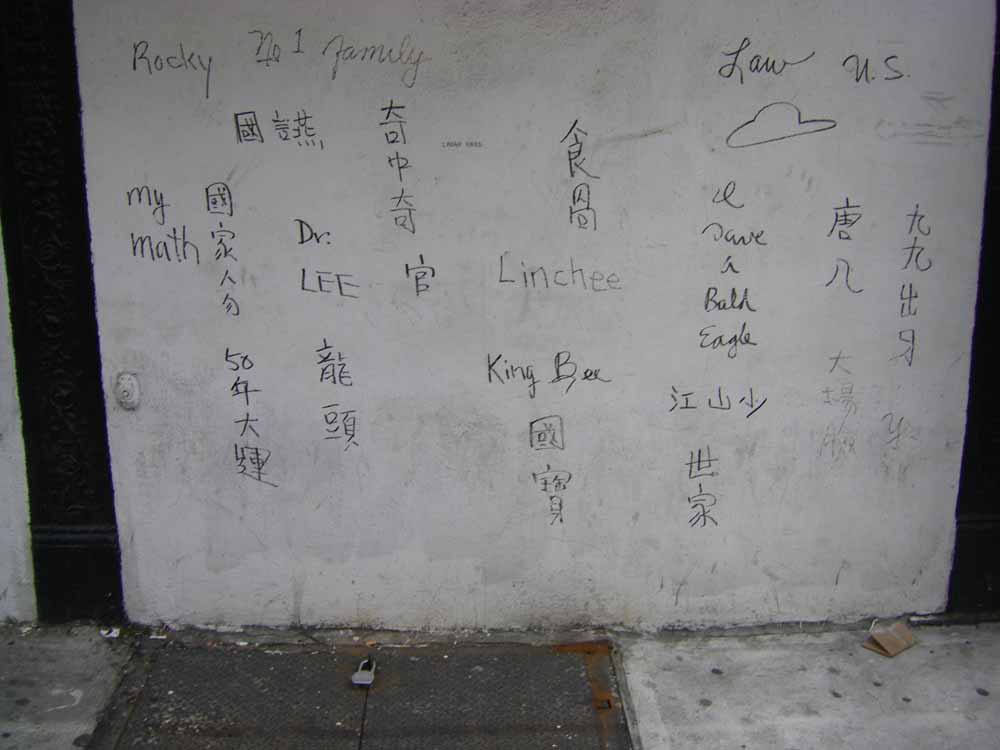 Rocky No 1 family
Law U.S.
國 讌
奇中奇
食
my
math
國家人
Dr.
LEE
官
Linchee
save
a
Eagle
唐八
九九出
50年大
龍頭
King Bee
國寶
江山少
世家
大場